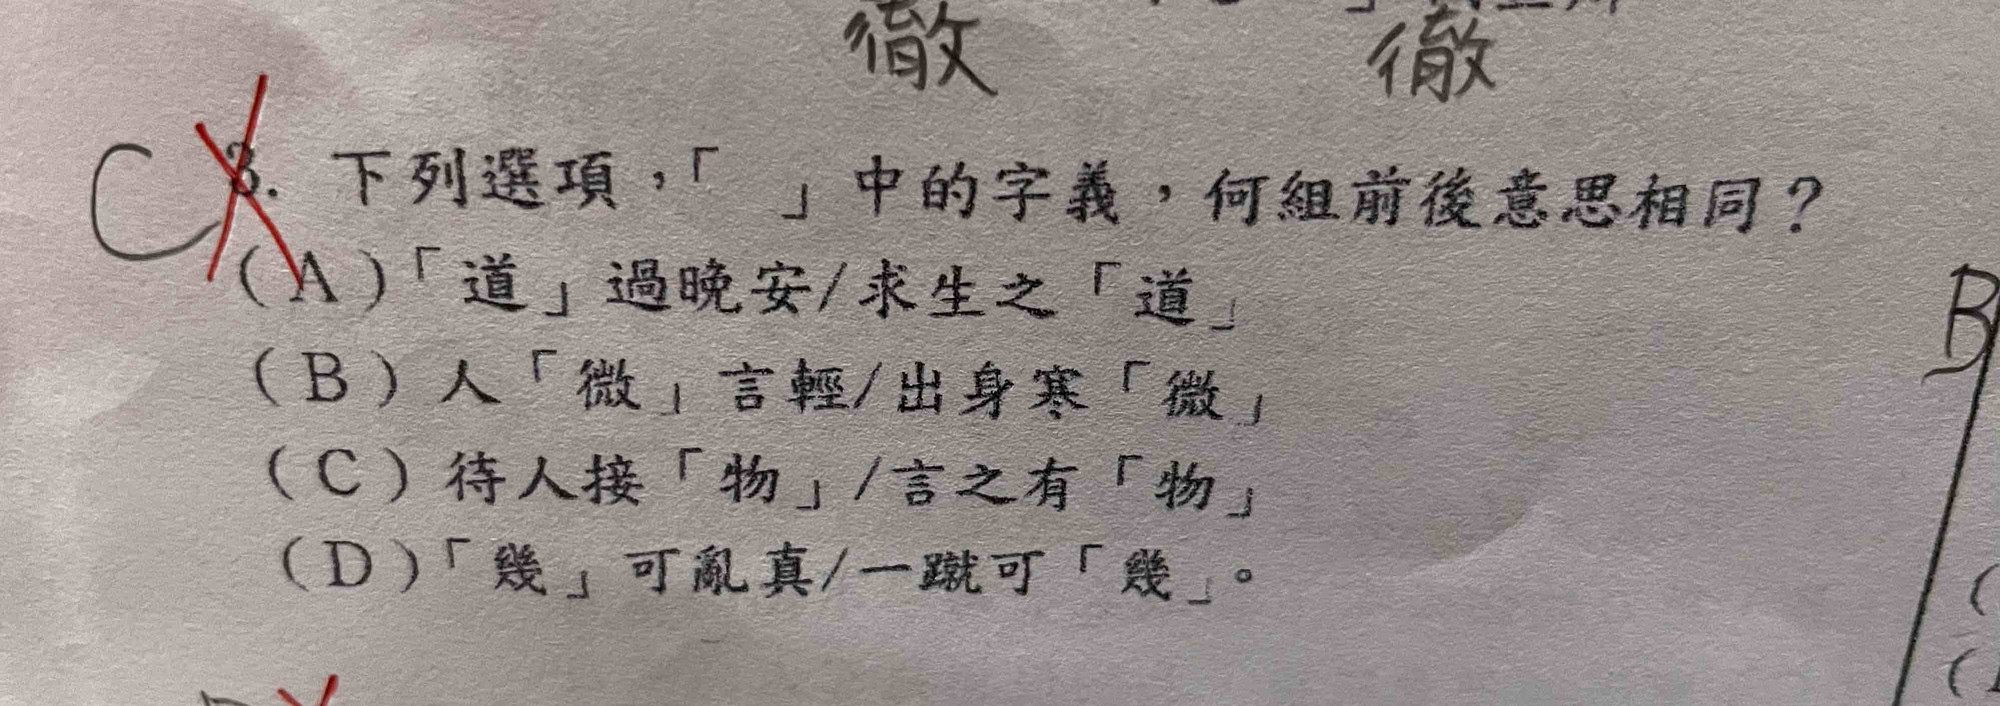 徹 徹
C 3. 下列選項，「　」中的字義，何組前後意思相同？
(A)「道」過晚安/求生之「道」
B
(B)人「微」言輕/出身寒「微」
(C)待人接「物」/言之有「物」
(D)「幾」可亂真/一蹴可「幾」。